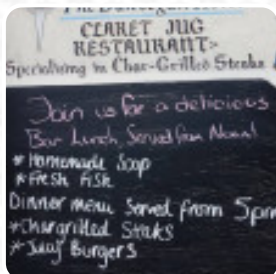 The
CLARET JUG
RESTAURANT
Specialising in Char-Grilled Steaks
Join us for a delicious
Bar Lunch, Served from
* Homemade Soap
* Fresh Fish
Dinner menu Served from 5pm
* Chargrilled Staks
* Burgers